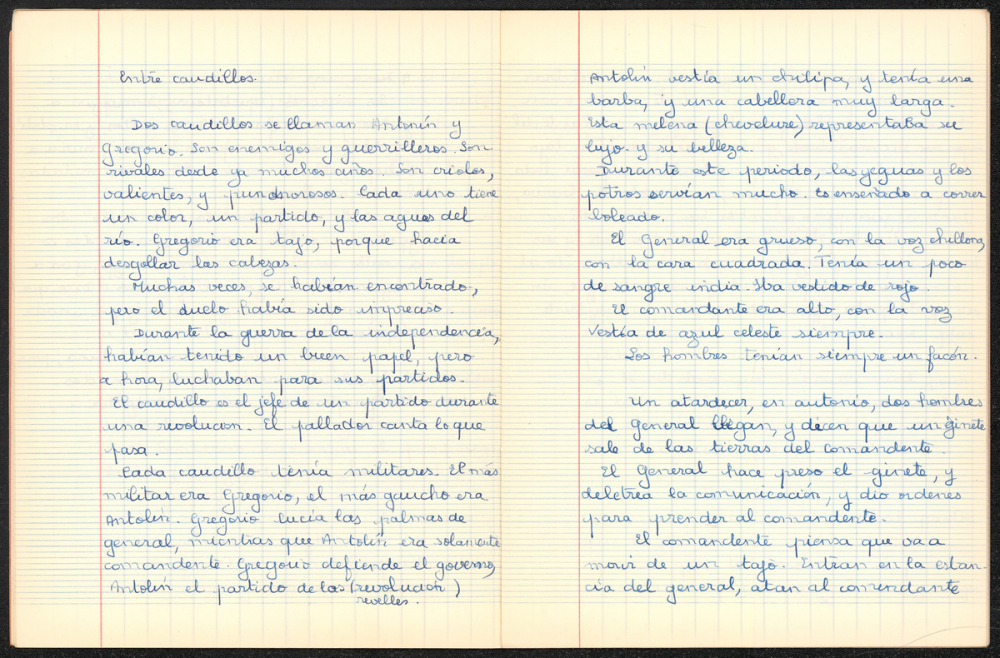 Entre caudillos.
Dos caudillos se llaman Antonín y
Gregorio. Son enemigos y guerrilleros. Son
rivales desde ya muchos años. Son criolos,
valientes, y pundonorosos. Cada uno tiene
un color, un partido, y las aguas del
río. Gregorio era tajo, porque hacía
desgollar las cabezas.
Muchas veces, se habían encontrado,
pero el duelo había sido impreciso.
Durante la guerra de la independencia,
habían tenido un buen papel, pero
a hora, luchaban para sus partidos.
El caudillo es el jefe de un partido durante
una revolucion. El pallador canta lo que
pasa.
Cada caudillo tenía militares. El más
militar era Gregorio, el más gaucho era
Antolín. Gregorio lucía las palmas de
general, mientras que Antolín era solamente
comandente. Gregorio defiende el governo,
Antolín el partido de los (revolución)
revelles.
Antolín vestía un chilipa, y tenía una
barba, y una cabellera muy larga.
Esta melena (chevelure) representaba su
lujo. y su belleza.
Durante este periodo, las yeguas y los
potros servían mucho. Es enseñado a correr
boleado.
El General era grueso, con la voz chillona,
con la cara cuadrada. Tenía un poco
de sangre india. Iba vestido de rojo.
El comandante era alto, con la voz
Vestía de azul celeste siempre.
Los hombres tenían siempre un facón.
Un atardecer, en autonio, dos hombres
del general llegan, y decen que un ginete
sale de las tierras del comandente.
El General hace preso el ginete, y
deletrea la comunicación, y dio ordenes
para prender al comandente.
El comandente piensa que va a
morir de un tajo. Entran en la estan-
cia del general, atan al comendante